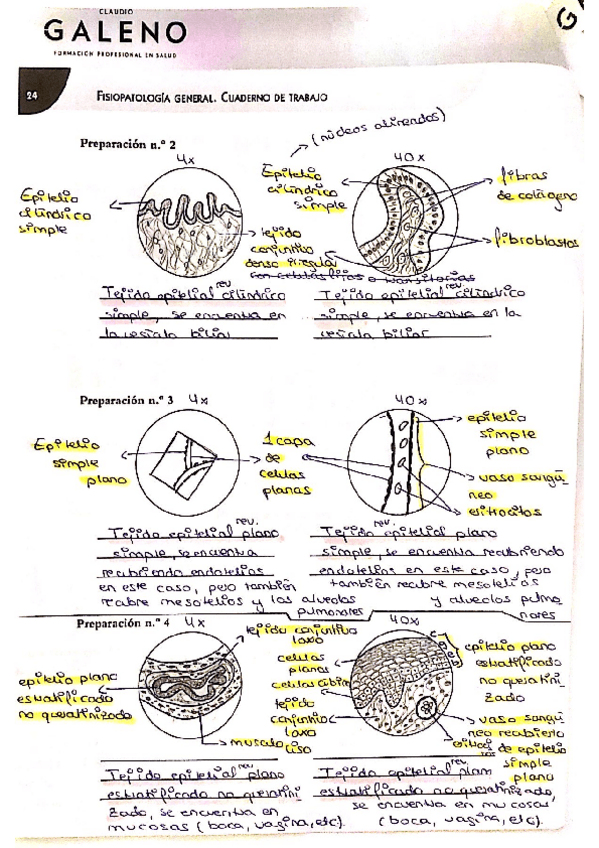 CLAUDIO
GALENO
FORMACIÓN PROFESIONAL EN SALUD
24
FISIOPATOLOGÍA GENERAL. CUADERNO DE TRABAJO
Preparación n.º 2
4x
40x
(núcleos alineados)
Epitelio
cilíndrico
simple
tejido
conjuntivo
denso irregular
con células fijas o transitorias
Epitelio
cilíndrico
simple
fibras
de colágeno
fibroblastos
Tejido epitelial rev. cilíndrico
simple, se encuentra en
la vesícula biliar
Tejido epitelial rev. cilíndrico
simple, se encuentra en la
vesícula biliar
Preparación n.º 3
4x
40x
Epitelio
simple
plano
1 capa
de
celulas
planas
epitelio
simple
plano
vaso sanguí
neo
eritrocitos
Tejido epitelial rev. plano
simple, se encuentra
recubriendo endotelios
en este caso, pero también
recubre mesotelios y los alveolos
pulmonares
Tejido rev. epitelial plano
simple, se encuentra recubriendo
endotelios en este caso, pero
también recubre mesotelios
y alveolos pulmo
nares
Preparación n.º 4
4x
40x
epitelio plano
estratificado
no queratinizado
tejido conjuntivo
laxo
musculo liso
celulas
planas
celulas cúbicas
tejido
conjuntivo
laxo
epitelio plano
estratificado
no queratini
zado
vaso sanguí
neo recubierto
de epitelio
simple
plano
Tejido epitelial rev. plano
estratificado no queratini
zado, se encuentra en
mucosas (boca, vagina, etc).
Tejido epitelial rev. plano
estratificado no queratinizado,
se encuentra en mucosas
(boca, vagina, etc).